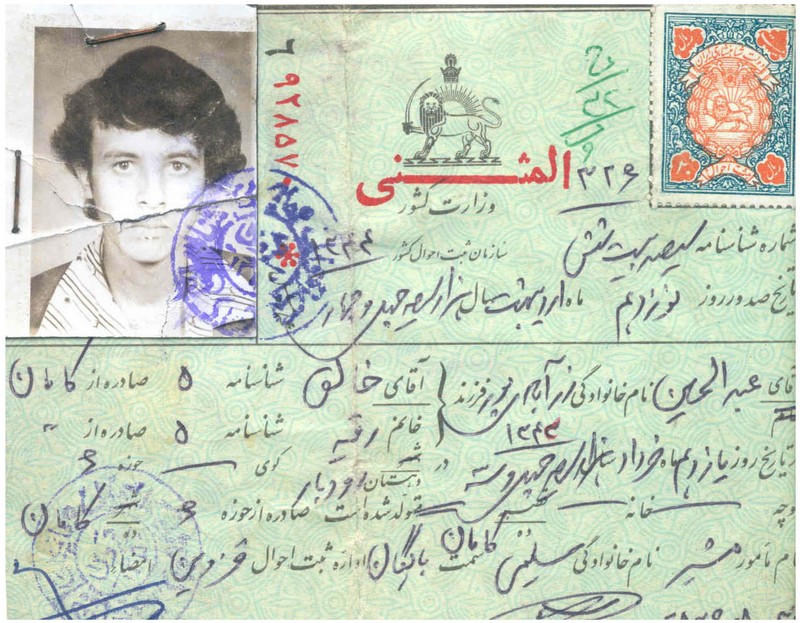 ۶ ۹۲۸۵۷
المثنی
۳۲۶
وزارت کشور
سازمان ثبت احوال کشور
۱۳۴۴
شماره شناسنامه سیصد بیست شش
تاریخ صدور روز نوزدهم ماه اردیبهشت سال هزار سیصد چهل و چهار
آقای عبدالحسین نام خانوادگی فرزند آقای خالق شناسنامه ۵ صادره از کامان
خانم رقیه شناسنامه ۵ صادره از
۱۳۴۳
در تاریخ روز یازدهم ماه خرداد سال هزار سیصد چهل و سه در شهر دهستان رودبار کوی حوزه ۶
کوچه خانه متولد شده است صادره از حوزه ۶ شهر ده کامان
نام مأمور مشیر نام خانوادگی سلیمی سمت اداره ثبت احوال قزوین امضاء